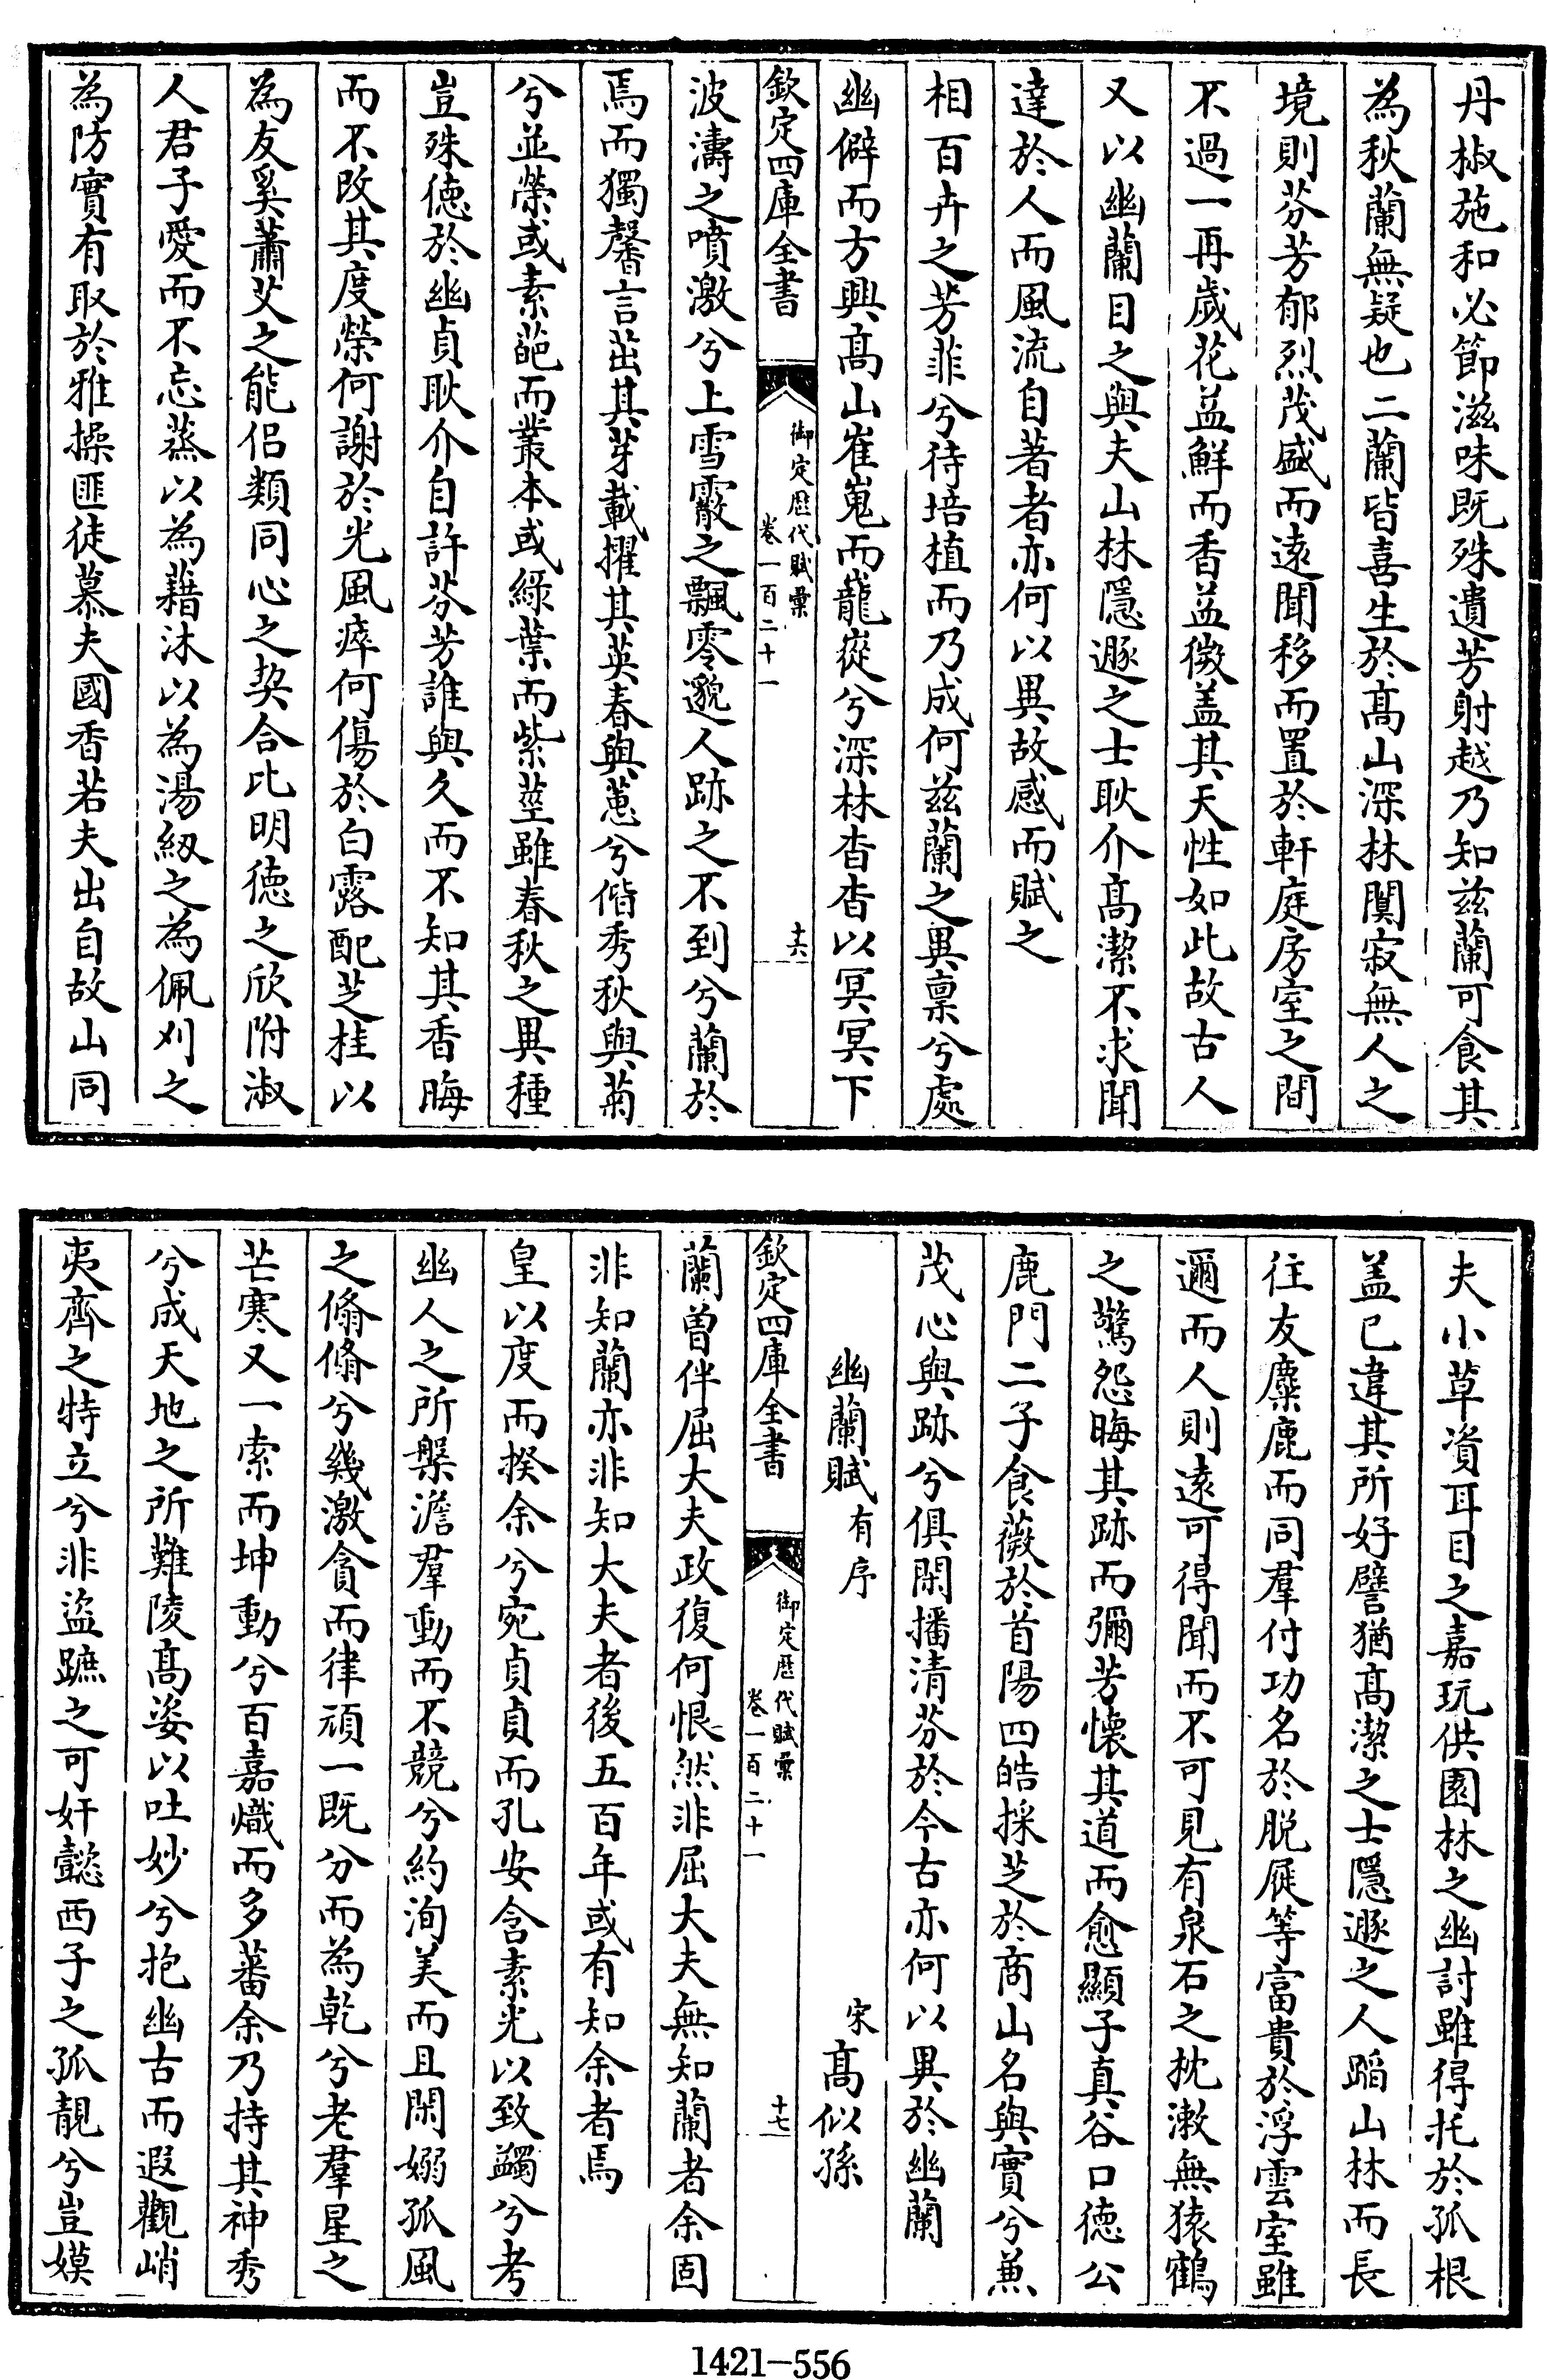 丹椒施和必節滋味既殊遺芳射越乃知兹蘭可食其
為秋蘭無疑也二蘭皆喜生於髙山深林闃寂無人之
境則芬芳郁烈茂盛而逺聞移而置於軒庭房室之間
不過一再歲花益鮮而香益微盖其天性如此故古人
又以幽蘭目之與夫山林隱遯之士耿介髙潔不求聞
達於人而風流自著者亦何以異故感而賦之
相百卉之芳菲兮待培植而乃成何兹蘭之異禀兮處
幽僻而方興髙山崔嵬而巃嵸兮深林杳杳以冥冥下
欽定四庫全書
御定歴代賦彙
卷一百二十一
十六
波濤之噴激兮上雪霰之飄零邈人跡之不到兮蘭於
焉而獨馨言茁其芽載擢其英春與蕙兮偕秀秋與菊
兮並榮或素葩而叢本或綠葉而紫莖雖春秋之異種
豈殊徳於幽貞耿介自許芬芳誰與久而不知其香晦
而不改其度榮何謝於光風瘁何傷於白露配芝桂以
為友奚蕭艾之能侣類同心之契合比明徳之欣附淑
人君子愛而不忘蒸以為藉沐以為湯紉之為佩刈之
為防實有取於雅操匪徒慕夫國香若夫出自故山同
夫小草資耳目之嘉玩供園林之幽討雖得托於孤根
盖已違其所好譬猶髙潔之士隱遯之人蹈山林而長
往友麋鹿而同羣付功名於脱屣等富貴於浮雲室雖
邇而人則逺可得聞而不可見有泉石之枕漱無猿鶴
之驚怨晦其跡而彌芳懷其道而愈顯子真谷口徳公
鹿門二子食薇於首陽四皓採芝於商山名與實兮兼
茂心與跡兮俱閑播清芬於今古亦何以異於幽蘭
幽蘭賦有序　宋髙似孫
欽定四庫全書
御定歴代賦彙
卷一百二十一
十七
蘭曽伴屈大夫政復何恨然非屈大夫無知蘭者余固
非知蘭亦非知大夫者後五百年或有知余者焉
皇以度而揆余兮宛貞貞而孔安含素光以致蠲兮考
幽人之所槃澹羣動而不競兮約洵美而且閑嫋孤風
之翛翛兮幾激貪而律頑一既分而為乾兮老羣星之
芒寒又一索而坤動兮百嘉熾而多蕃余乃持其神秀
兮成天地之所難陵髙姿以吐妙兮抱幽古而遐觀峭
夷齊之特立兮非盜蹠之可奸懿西子之孤靚兮豈嫫
1421-556